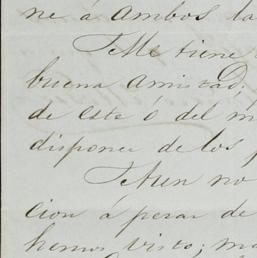 ne á ambos la
tiene
buena amistad;
de este ó del m
disponer de los
Aun no
cion á pesar de
hemos visto; m